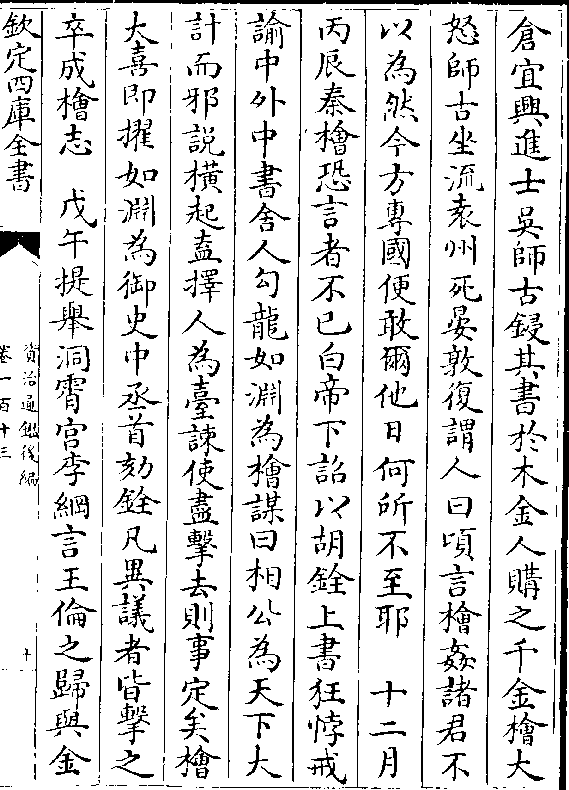 倉宜興進士吳師古鋟其書於木金人購之千金檜大
怒師古坐流袁州死晏敦復謂人曰頃言檜姦諸君不
以為然今方專國便敢爾他日何所不至耶　十二月
丙辰秦檜恐言者不已白帝下詔以胡銓上書狂悖戒
諭中外中書舍人勾龍如淵為檜謀曰相公為天下大
計而邪說橫起盍擇人為臺諫使盡擊去則事定矣檜
大喜即擢如淵為御史中丞首劾銓凡異議者皆擊之
卒成檜志　戊午提舉洞霄宮李綱言王倫之歸與金
欽定四庫全書
資治通鑑後編
卷一百十三
十